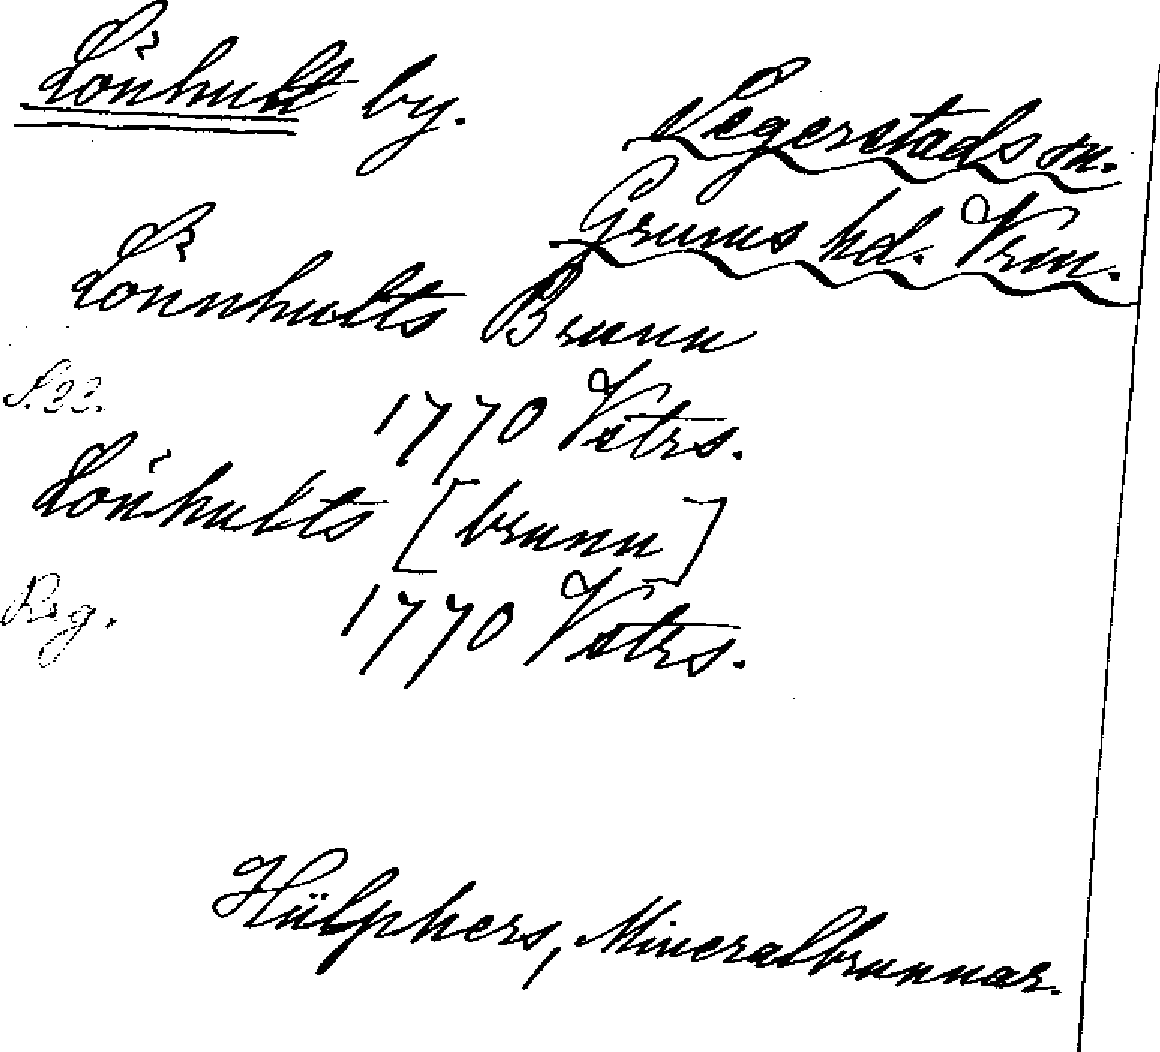 Lönhult by.
Segerstads sn.
Grums hd. Vrm.
Lönnhults Brunn
S. 22. 1770 Vstrs.
Lönhults [brunn]
Reg. 1770 Vstrs.
Hülphers, Mineralbrunnar.